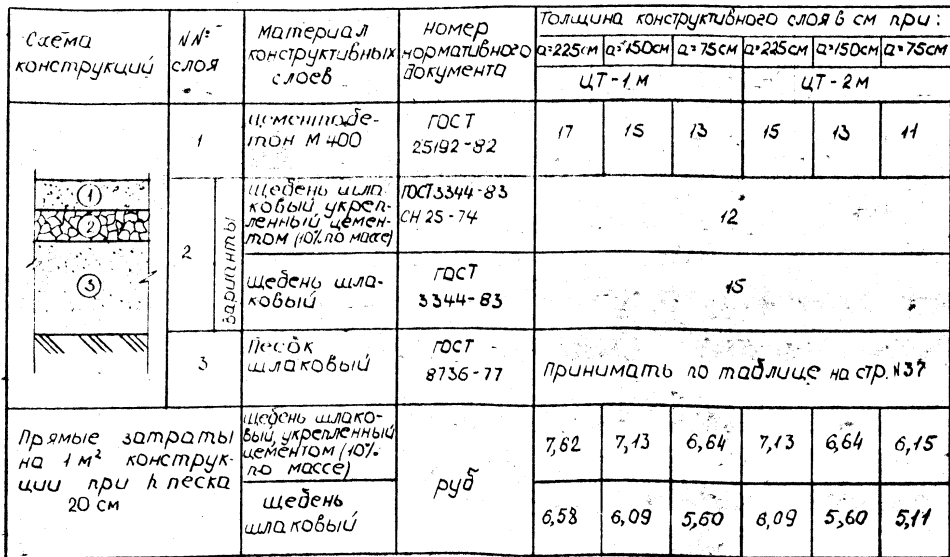 Схема
конструкций
NNº
слоя
Материал
конструктивных
слоев
номер
нормативного
документа
Толщина конструктивного слоя в см при:
a=225см a=150см a=75см a=225см a=150см a=75см
ЦТ-1м ЦТ-2м
1
цементобе-
тон М400
ГОСТ
25192-82
17 15 13 15 13 11
1
2
3
2
варианты
щебень шла
ковый укреп-
ленный цемен-
том (10% по массе)
ГОСТ3344-83
СН 25-74
12
щебень шла-
ковый
ГОСТ
3344-83
15
3
Песок
шлаковый
ГОСТ
8736-77
принимать по таблице на стр. N37
Прямые затраты
на 1м² конструк-
ции при h песка
20 см
щебень шлако-
вый, укрепленный
цементом (10%
по массе)
руб
7,62 7,13 6,64 7,13 6,64 6,15
щебень
шлаковый
6,58 6,09 5,60 6,09 5,60 5,11